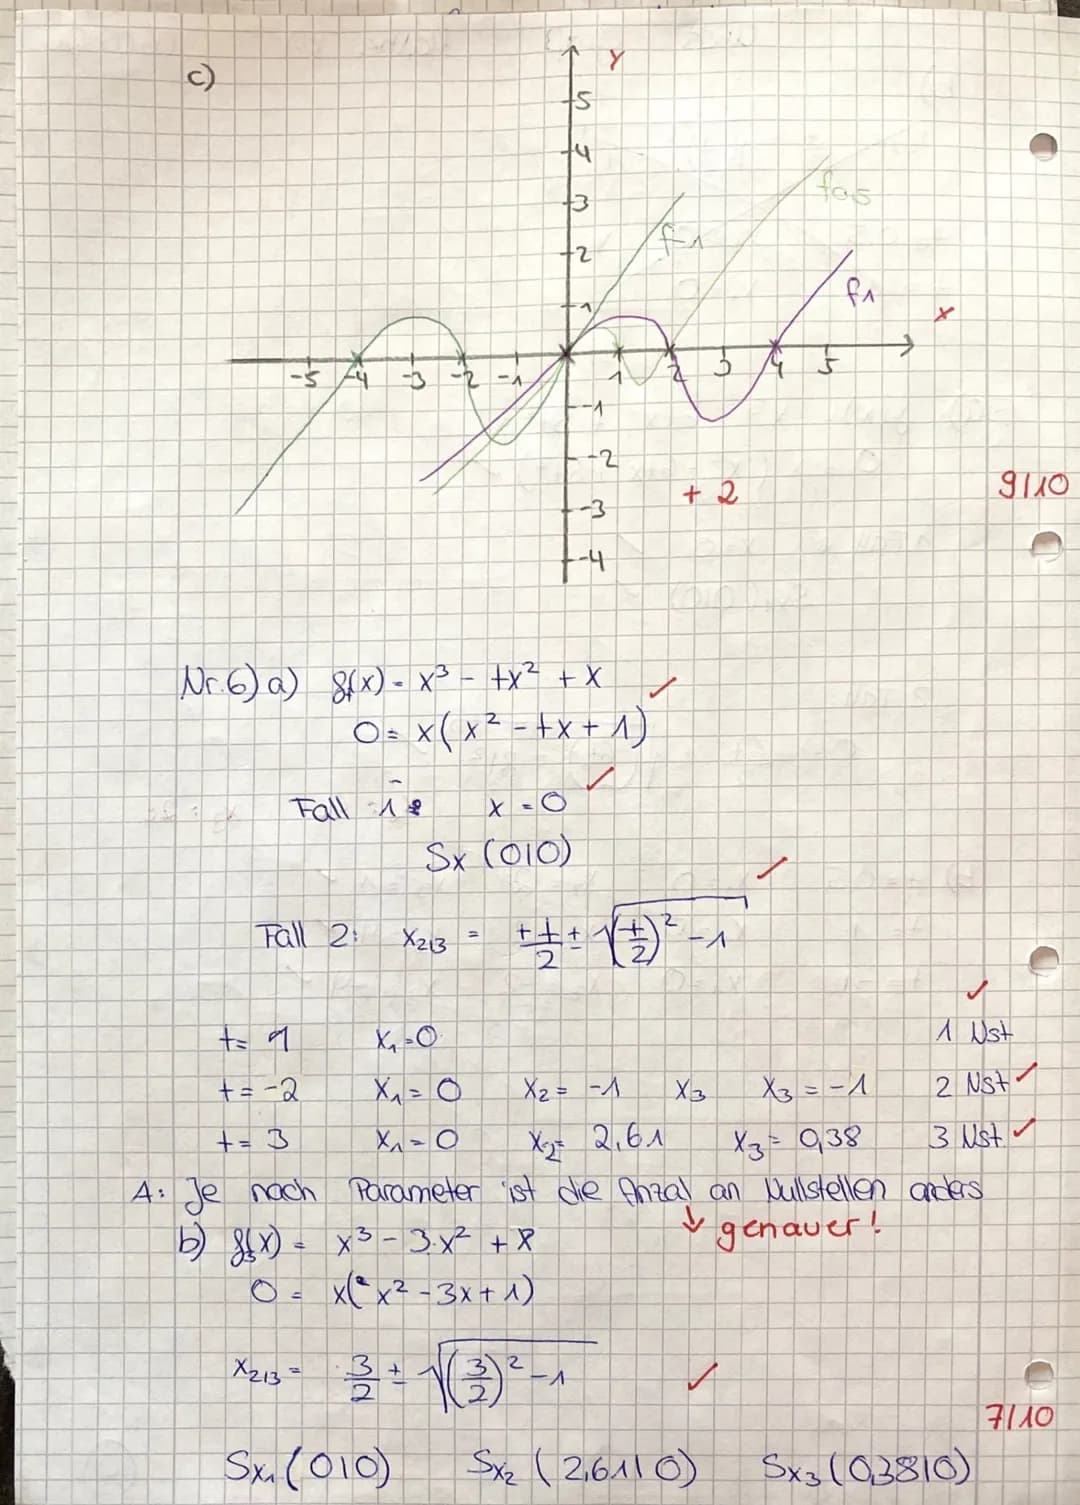 c)
Y
5
4
3
2
1
f-1
f0,5
f1
x
-5 -4 -3 -2 -1 1 2 3 4 5
-1
-2
-3
-4
+ 2
9/10
Nr. 6) a) ft(x) = x³ - tx² + x ✓
0 = x(x² - tx + 1)
Fall 1: x = 0 ✓
Sx (0|0)
Fall 2: x2/3 = + t/2 ± √((t/2)² - 1) ✓
t = 1 x1 = 0 1 Nst ✓
t = -2 x1 = 0 x2 = -1 x3 x3 = -1 2 Nst ✓
t = 3 x1 = 0 x2 = 2,61 x3 = 0,38 3 Nst ✓
A: Je nach Parameter ist die Anzal an Nullstellen anders
↓ genauer!
b) f3(x) = x³ - 3·x² + x
0 = x(x² - 3x + 1)
x2/3 = 3/2 ± √((3/2)² - 1) ✓
7/10
Sx1 (0|0) Sx2 (2,61|0) Sx3 (0,38|0)